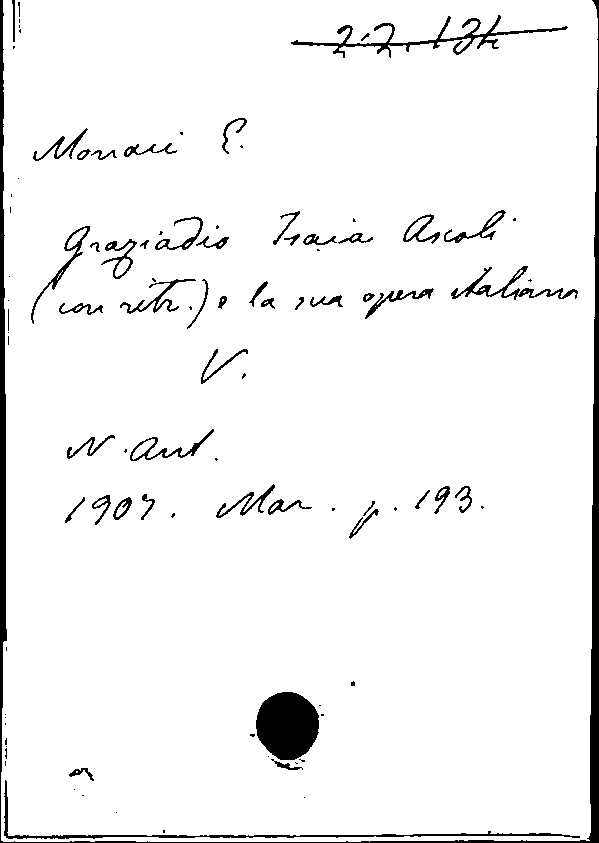 2.2.134
Monaci E.
Graziadio Isaia Ascoli
(con ritr.) e la sua opera italiana
V.
N. Ant.
1907. Mar. p. 193.